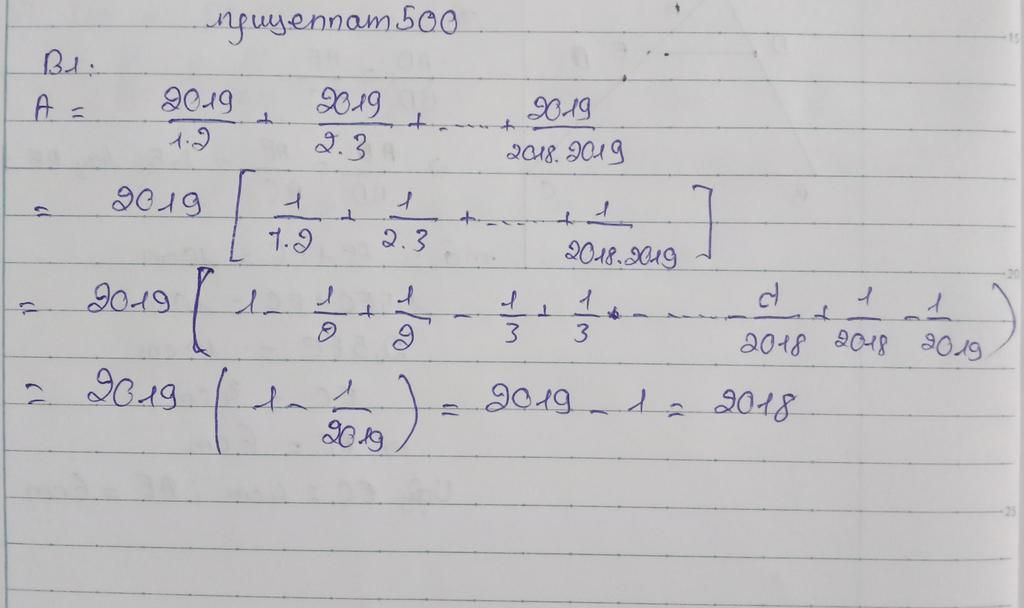 nguyennam500
B1:
A = 2019/1.2 + 2019/2.3 + ..... + 2019/2018.2019
= 2019 [ 1/1.2 + 1/2.3 + ..... + 1/2018.2019 ]
= 2019 ( 1 - 1/2 + 1/2 - 1/3 + 1/3 - ..... - 1/2018 + 1/2018 - 1/2019 )
= 2019 ( 1 - 1/2019 ) = 2019 - 1 = 2018